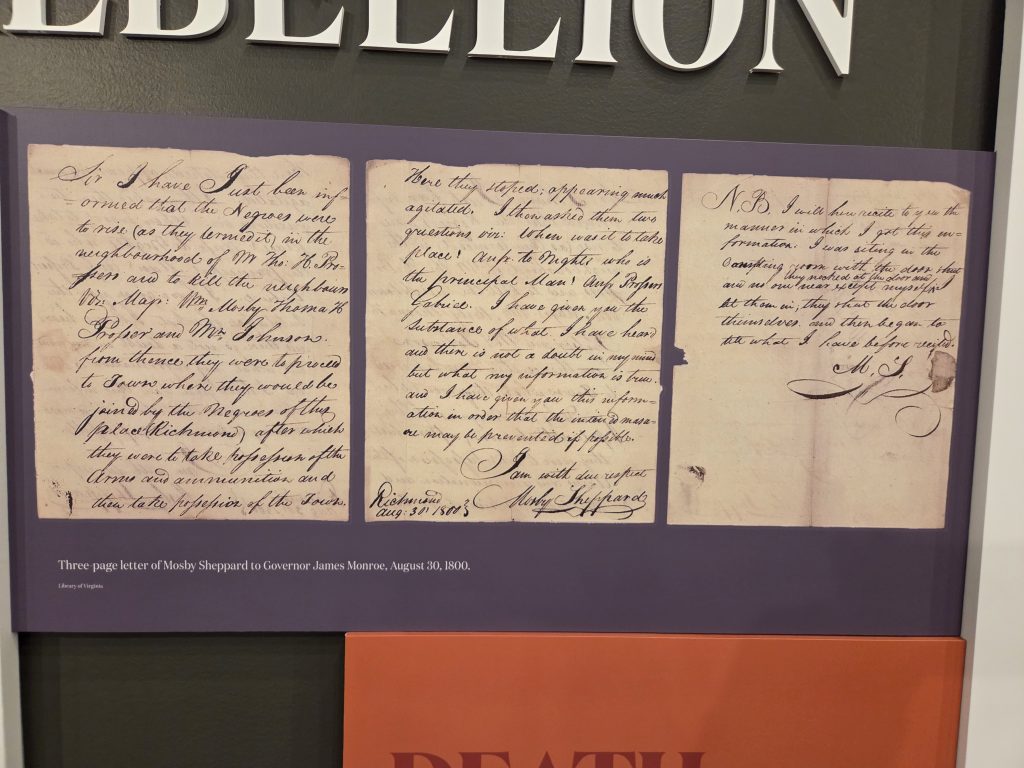 EBELLION
Sir I have Just been inf-
ormed that the Negroes were
to rise (as they termed it) in the
neighbourhood of Mr Tho: H. Pro-
ssers and to kill the neighbours
Viz: Majr: Wm Mosby Thomas H
Prosser and Mr Johnson.
from thence they were to proceed
to Town where they would be
joined by the Negroes of this
place (Richmond) after which
they were to take possession of the
Arms and ammunition and
then take possession of the Town.
Here they stoped; appearing much
agitated. I then asked them two
questions viz: When was it to take
place? Ansr: to Night: who is
the principal Man? Ansr: Prossers
Gabriel. I have given you the
Substance of what I have heard
and there is not a doubt in my mind
but what my information is true.
and I have given you this inform-
ation in order that the intended massa-
cre may be prevented if possible.
I am with due respect
Mosby Sheppard
Richmond
Aug: 30t 1800
N.B. I will here recite to you the
manner in which I got this in-
formation. I was siting in the
Counting room with the door shut
they nocked at the door and
and no one near except myself
let them in, they shut the door
themselves and then began to
tell what I have before recited.
M. S.
Three-page letter of Mosby Sheppard to Governor James Monroe, August 30, 1800.
Library of Virginia
DEATH